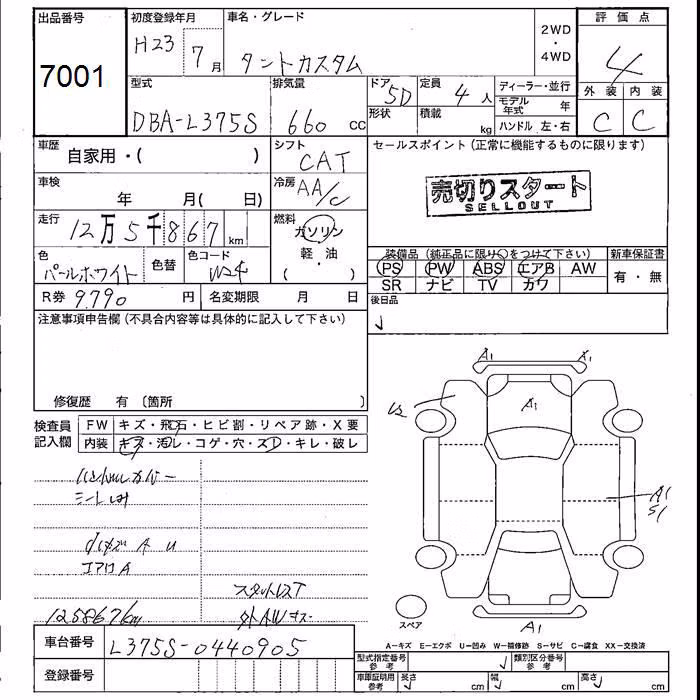 出品番号
7001
初度登録年月
H23 7月
車名・グレード
タントカスタム
2WD
・
4WD
評価点
4
型式
DBA-L375S
排気量
660 cc
ドア
5D
形状
定員
4人
積載
kg
ディーラー・並行
モデル年式 年
ハンドル 左・右
外装 内装
C C
車歴
自家用・( )
シフト
CAT
セールスポイント(正常に機能するものに限ります)
売切りスタート
SELLOUT
車検
年 月( 日)
冷房
AA/C
走行
12万5千867km
燃料
ガソリン
軽・油
( )
色
パールホワイト
色替
色コード
W24
装備品(純正品に限り○をつけて下さい)
PS PW ABS エアB AW
SR ナビ TV カワ
新車保証書
有・無
R券 9790円
名変期限 月 日
後日品
注意事項申告欄(不具合内容等は具体的に記入して下さい)
修復歴 有〔箇所 〕
検査員
記入欄
FW キズ・飛石・ヒビ割・リペア跡・X要
内装 キズ・汚レ・コゲ・穴・スレ・キレ・破レ
A1 A1
A1
A1
S1
A1
エアロA
スタットレスT
125867km
スペア
A-キズ E-エクボ U-凹み W-補修跡 S-サビ C-腐食 XX-交換済
車台番号 L375S-0440905
登録番号
型式指定番号
参考
類別区分番号
参考
車庫証明用
参考
長さ cm 幅 cm 高さ cm